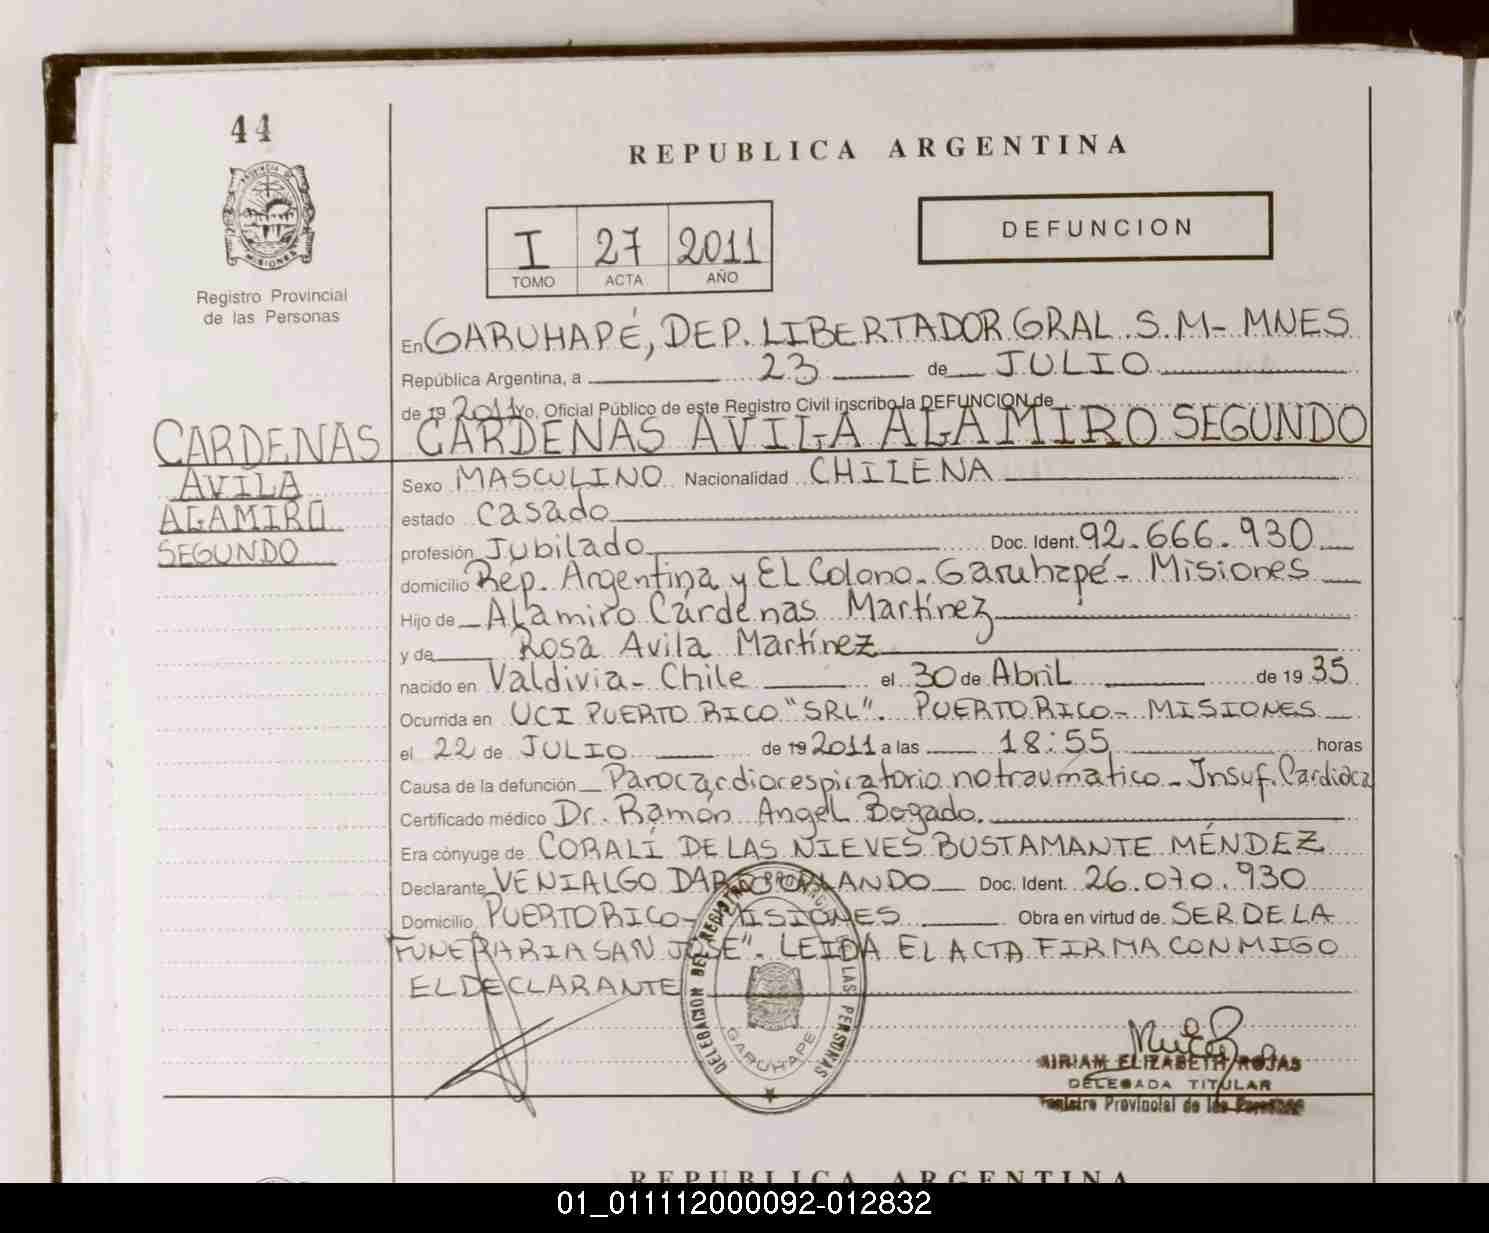 44
PROVINCIA DE
MISIONES
Registro Provincial
de las Personas
REPUBLICA ARGENTINA
I 27 2011
TOMO ACTA AÑO
DEFUNCION
En GARUHAPÉ, DEP. LIBERTADOR GRAL. S. M- MNES
República Argentina, a 23 de JULIO
de 19 2011 yo, Oficial Público de este Registro Civil inscribo la DEFUNCION de
CARDENAS AVILA ALAMIRO SEGUNDO
CARDENAS
AVILA
ALAMIRO
SEGUNDO
Sexo MASCULINO Nacionalidad CHILENA
estado Casado
profesión Jubilado Doc. Ident. 92.666.930
domicilio Rep. Argentina y El Colono - Garuhapé - Misiones
Hijo de Alamiro Cárdenas Martínez
y de Rosa Avila Martínez
nacido en Valdivia - Chile el 30 de Abril de 19 35
Ocurrida en UCI PUERTO RICO "SRL". PUERTO RICO - MISIONES
el 22 de JULIO de 19 2011 a las 18:55 horas
Causa de la defunción Parocardiorespiratorio no traumático - Insuf. Cardiaca
Certificado médico Dr. Ramón Angel Bogado.
Era cónyuge de CORALÍ DE LAS NIEVES BUSTAMANTE MÉNDEZ
Declarante VENIALGO DARIO ORLANDO Doc. Ident. 26.070.930
Domicilio PUERTO RICO - MISIONES Obra en virtud de SER DE LA
FUNERARIA SAN JOSE". LEIDA EL ACTA FIRMA CONMIGO
EL DECLARANTE
DELEGACION DEL REGISTRO PROVINCIAL DE LAS PERSONAS
GARUHAPE
MIRIAM ELIZABETH ROJAS
DELEGADA TITULAR
Registro Provincial de las Personas
REPUBLICA ARGENTINA
01_011112000092-012832